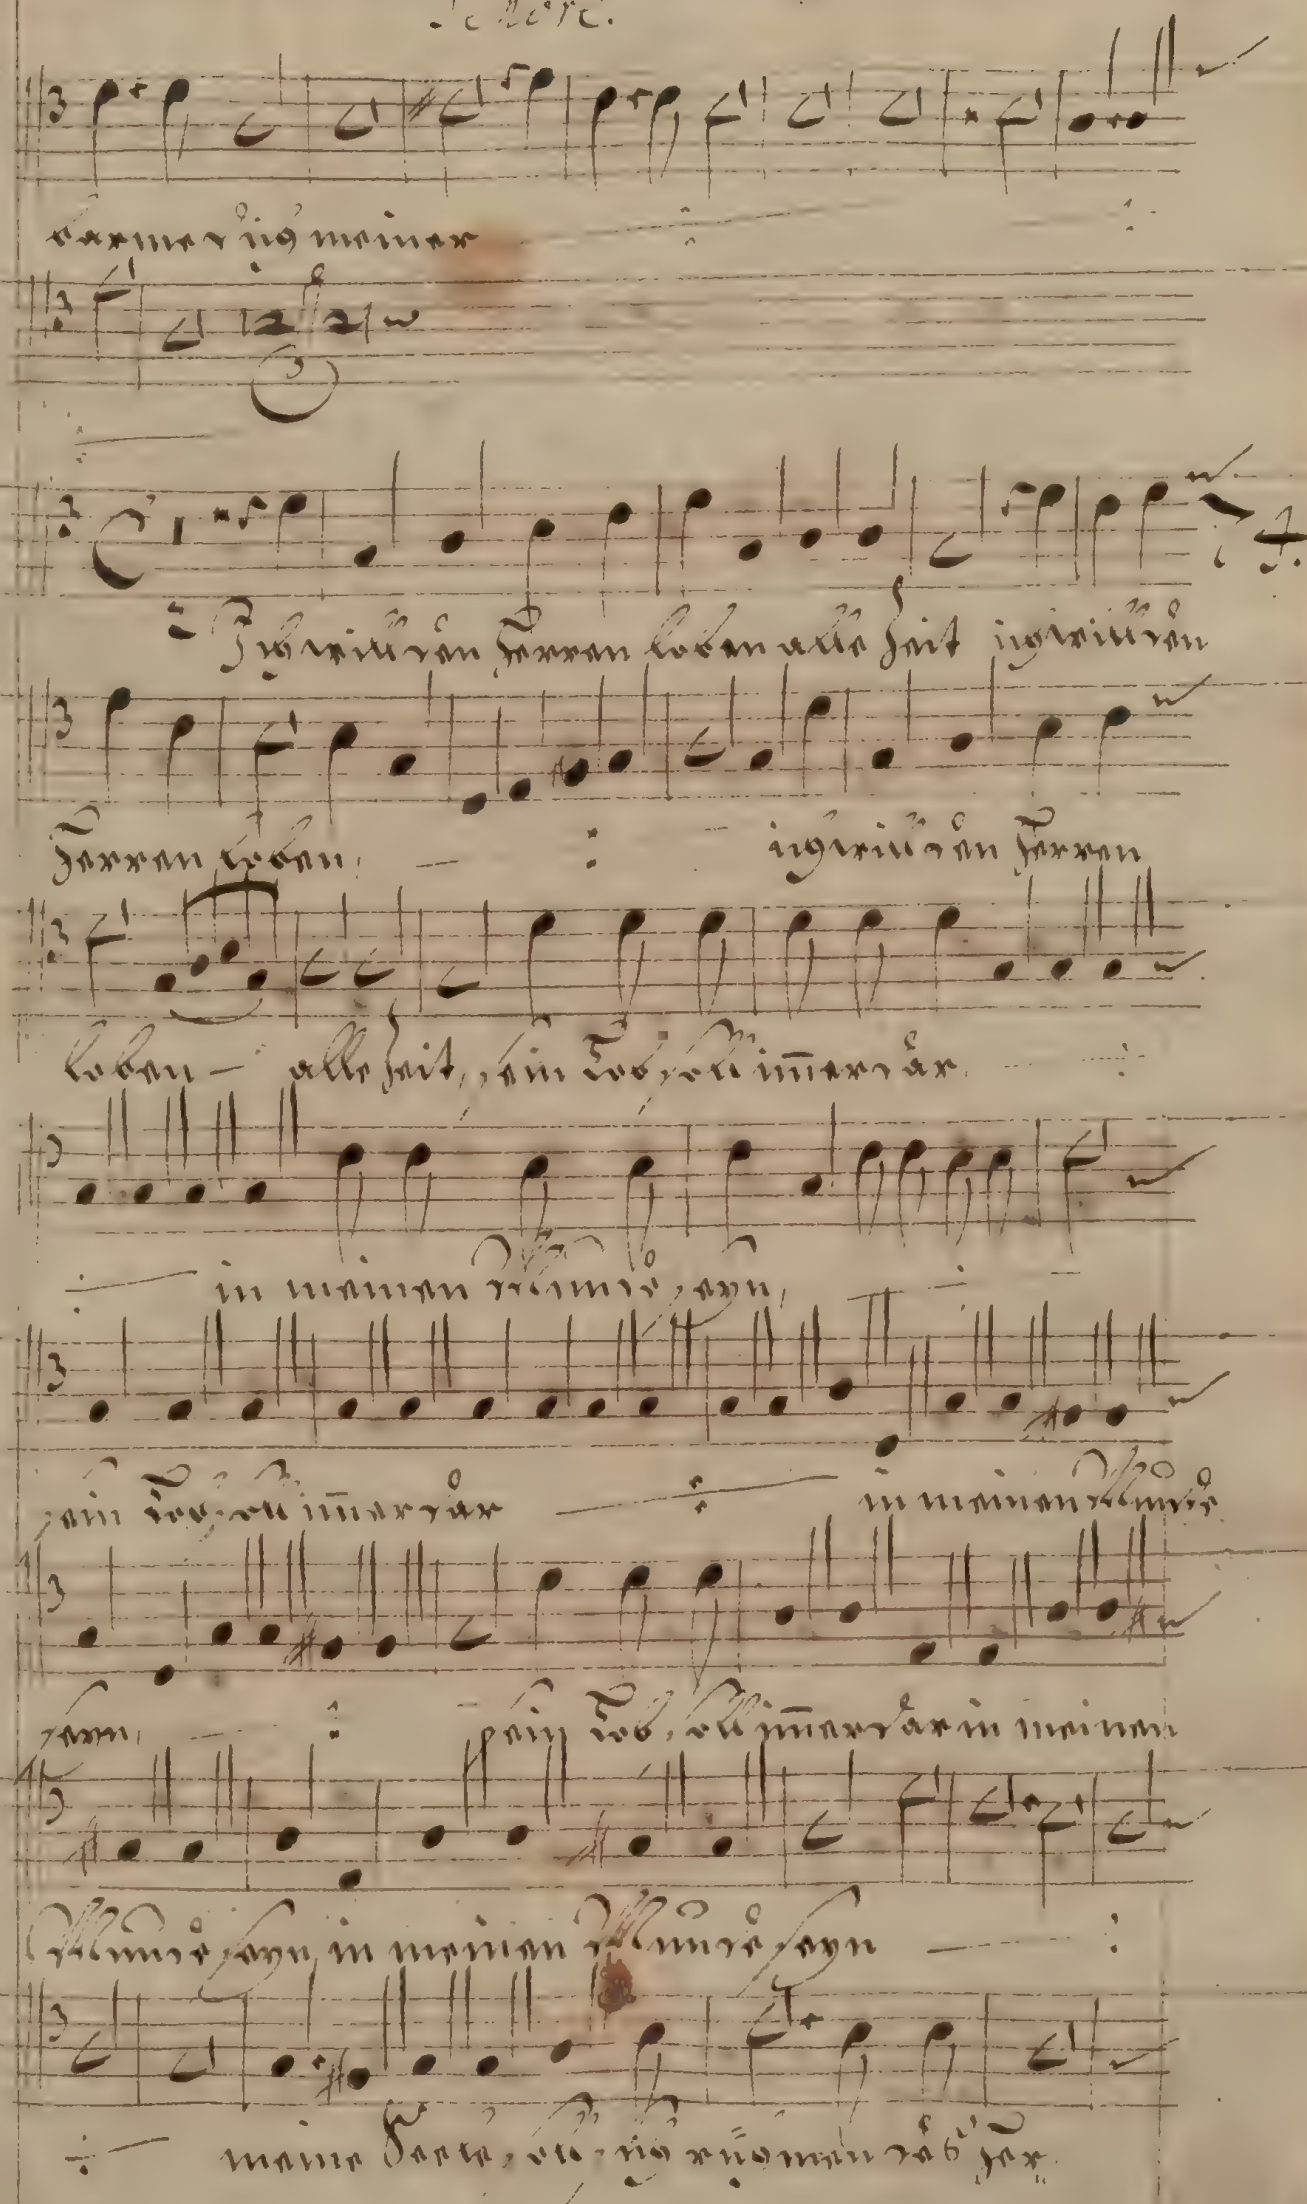 Tenore.
barme dich meiner
Ich will den Herren loben alle Zeit ich will den
Herren loben, ich will den Herren
loben – alle Zeit, sein Lob soll im̅erdar
in meinen Munde seyn,
sein Lob soll im̅erdar in meinen Munde
seyn, sein Lob soll im̅erdar in meinen
Munde seyn, in meinen Munde seyn
meine Seele soll sich rühmen des Her